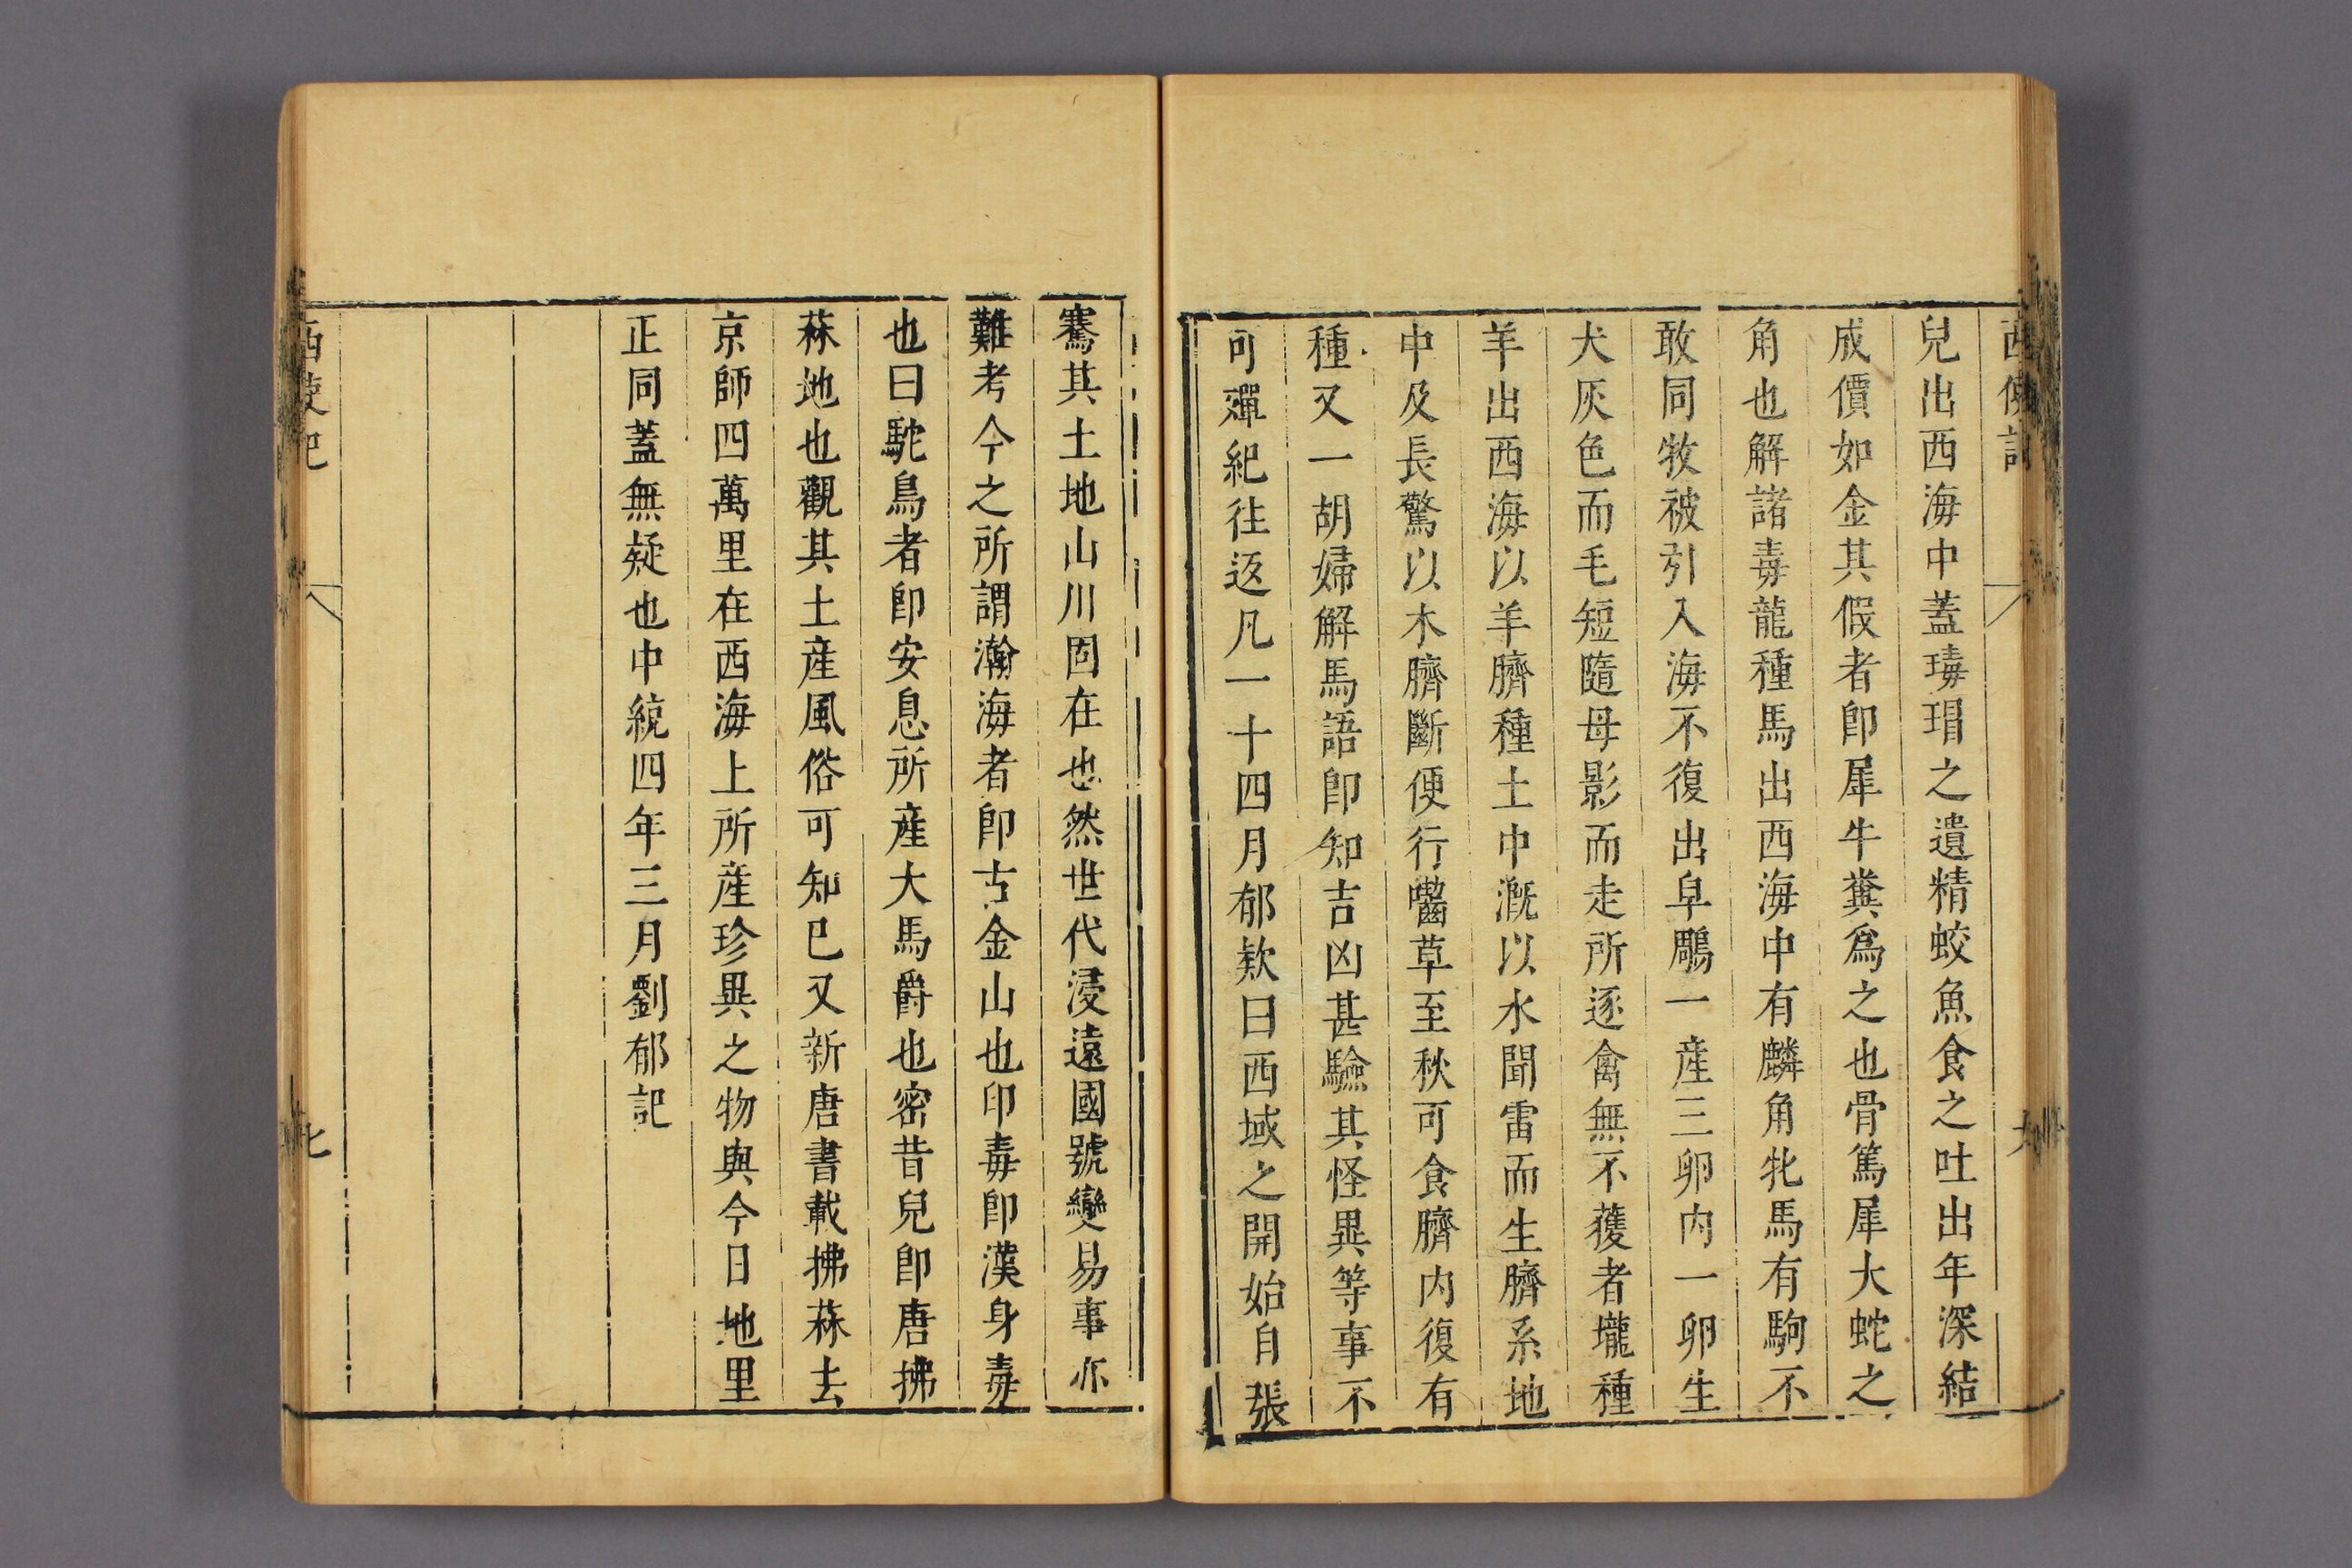 西使記
兒出西海中蓋瑇瑁之遺精蛟魚食之吐出年深結
成價如金其假者卽犀牛糞爲之也骨篤犀大蛇之
角也解諸毒龍種馬出西海中有麟角牝馬有駒不
敢同牧被引入海不復出阜鵰一產三卵内一卵生
犬灰色而毛短隨母影而走所逐禽無不獲者壠種
羊出西海以羊臍種土中溉以水聞雷而生臍系地
中及長驚以木臍斷便行嚙草至秋可食臍内復有
種又一胡婦解馬語卽知吉凶甚驗其怪異等事不
可殫紀往返凡一十四月郁欸曰西域之開始自張
騫其土地山川固在也然世代浸遠國號變易事亦
難考今之所謂瀚海者卽古金山也印毒卽漢身毒
也曰駝鳥者卽安息所產大馬爵也密昔兒卽唐拂
菻地也觀其土產風俗可知已又新唐書載拂菻去
京師四萬里在西海上所產珍異之物與今日地里
正同蓋無疑也中統四年三月劉郁記
西使記
七